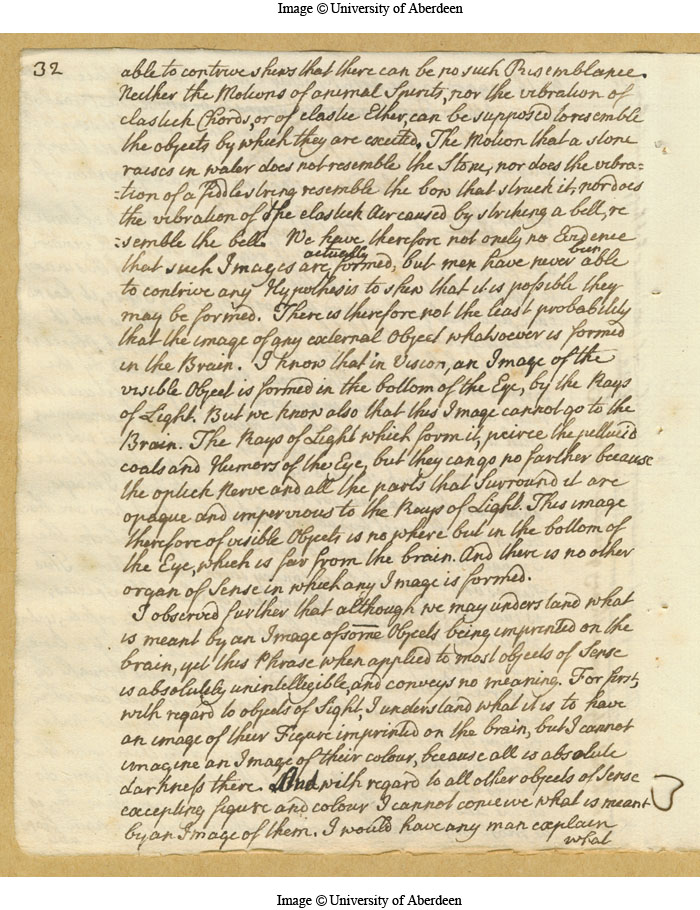 Image © University of Aberdeen
32
able to contrive shews that there can be no such Resemblance.
Neither the Motions of animal Spirits, nor the vibration of
elastick Chords, or of elastic Ether, can be supposed to resemble
the objects by which they are excited. The Motion that a stone
raises in water does not resemble the Stone, nor does the vibra=
=tion of a fiddlestring resemble the bow that struck it, nor does
the vibration of the elastick Air caused by striking a bell, re
=semble the bell. We have therefore not onely no Evidence
that such Images are actually formed, but men have never been able
to contrive any Hypothesis to shew that it is possible they
may be formed. There is therefore not the least probability
that the image of any external Object whatsoever is formed
in the Brain. I know that in Vision, an Image of the
visible Object is formed in the bottom of the Eye, by the Rays
of Light. But we know also that this Image cannot go to the
Brain. The Rays of Light which form it, peirce the pellucid
coats and Humors of the Eye, but they can go no farther because
the optick Nerve and all the parts that Surround it are
opaque and impervious to the Rays of Light. This image
therefore of visible Objects is no where but in the bottom of
the Eye, which is far from the brain. And there is no other
organ of Sense in which any Image is formed.
I observed further that although we may understand what
is meant by an Image of some Objects being imprinted on the
brain, yet this Phrase when applied to most objects of Sense
is absolutely unintellegible, and conveys no meaning. For first,
with regard to objects of Sight, I understand what it is to have
an image of their Figure imprinted on the brain, but I cannot
imagine an Image of their colour, because all is absolute
darkness there. And with regard to all other objects of Sense
excepting figure and colour I cannot conceive what is meant
by an Image of them. I would have any man explain
what
Image © University of Aberdeen